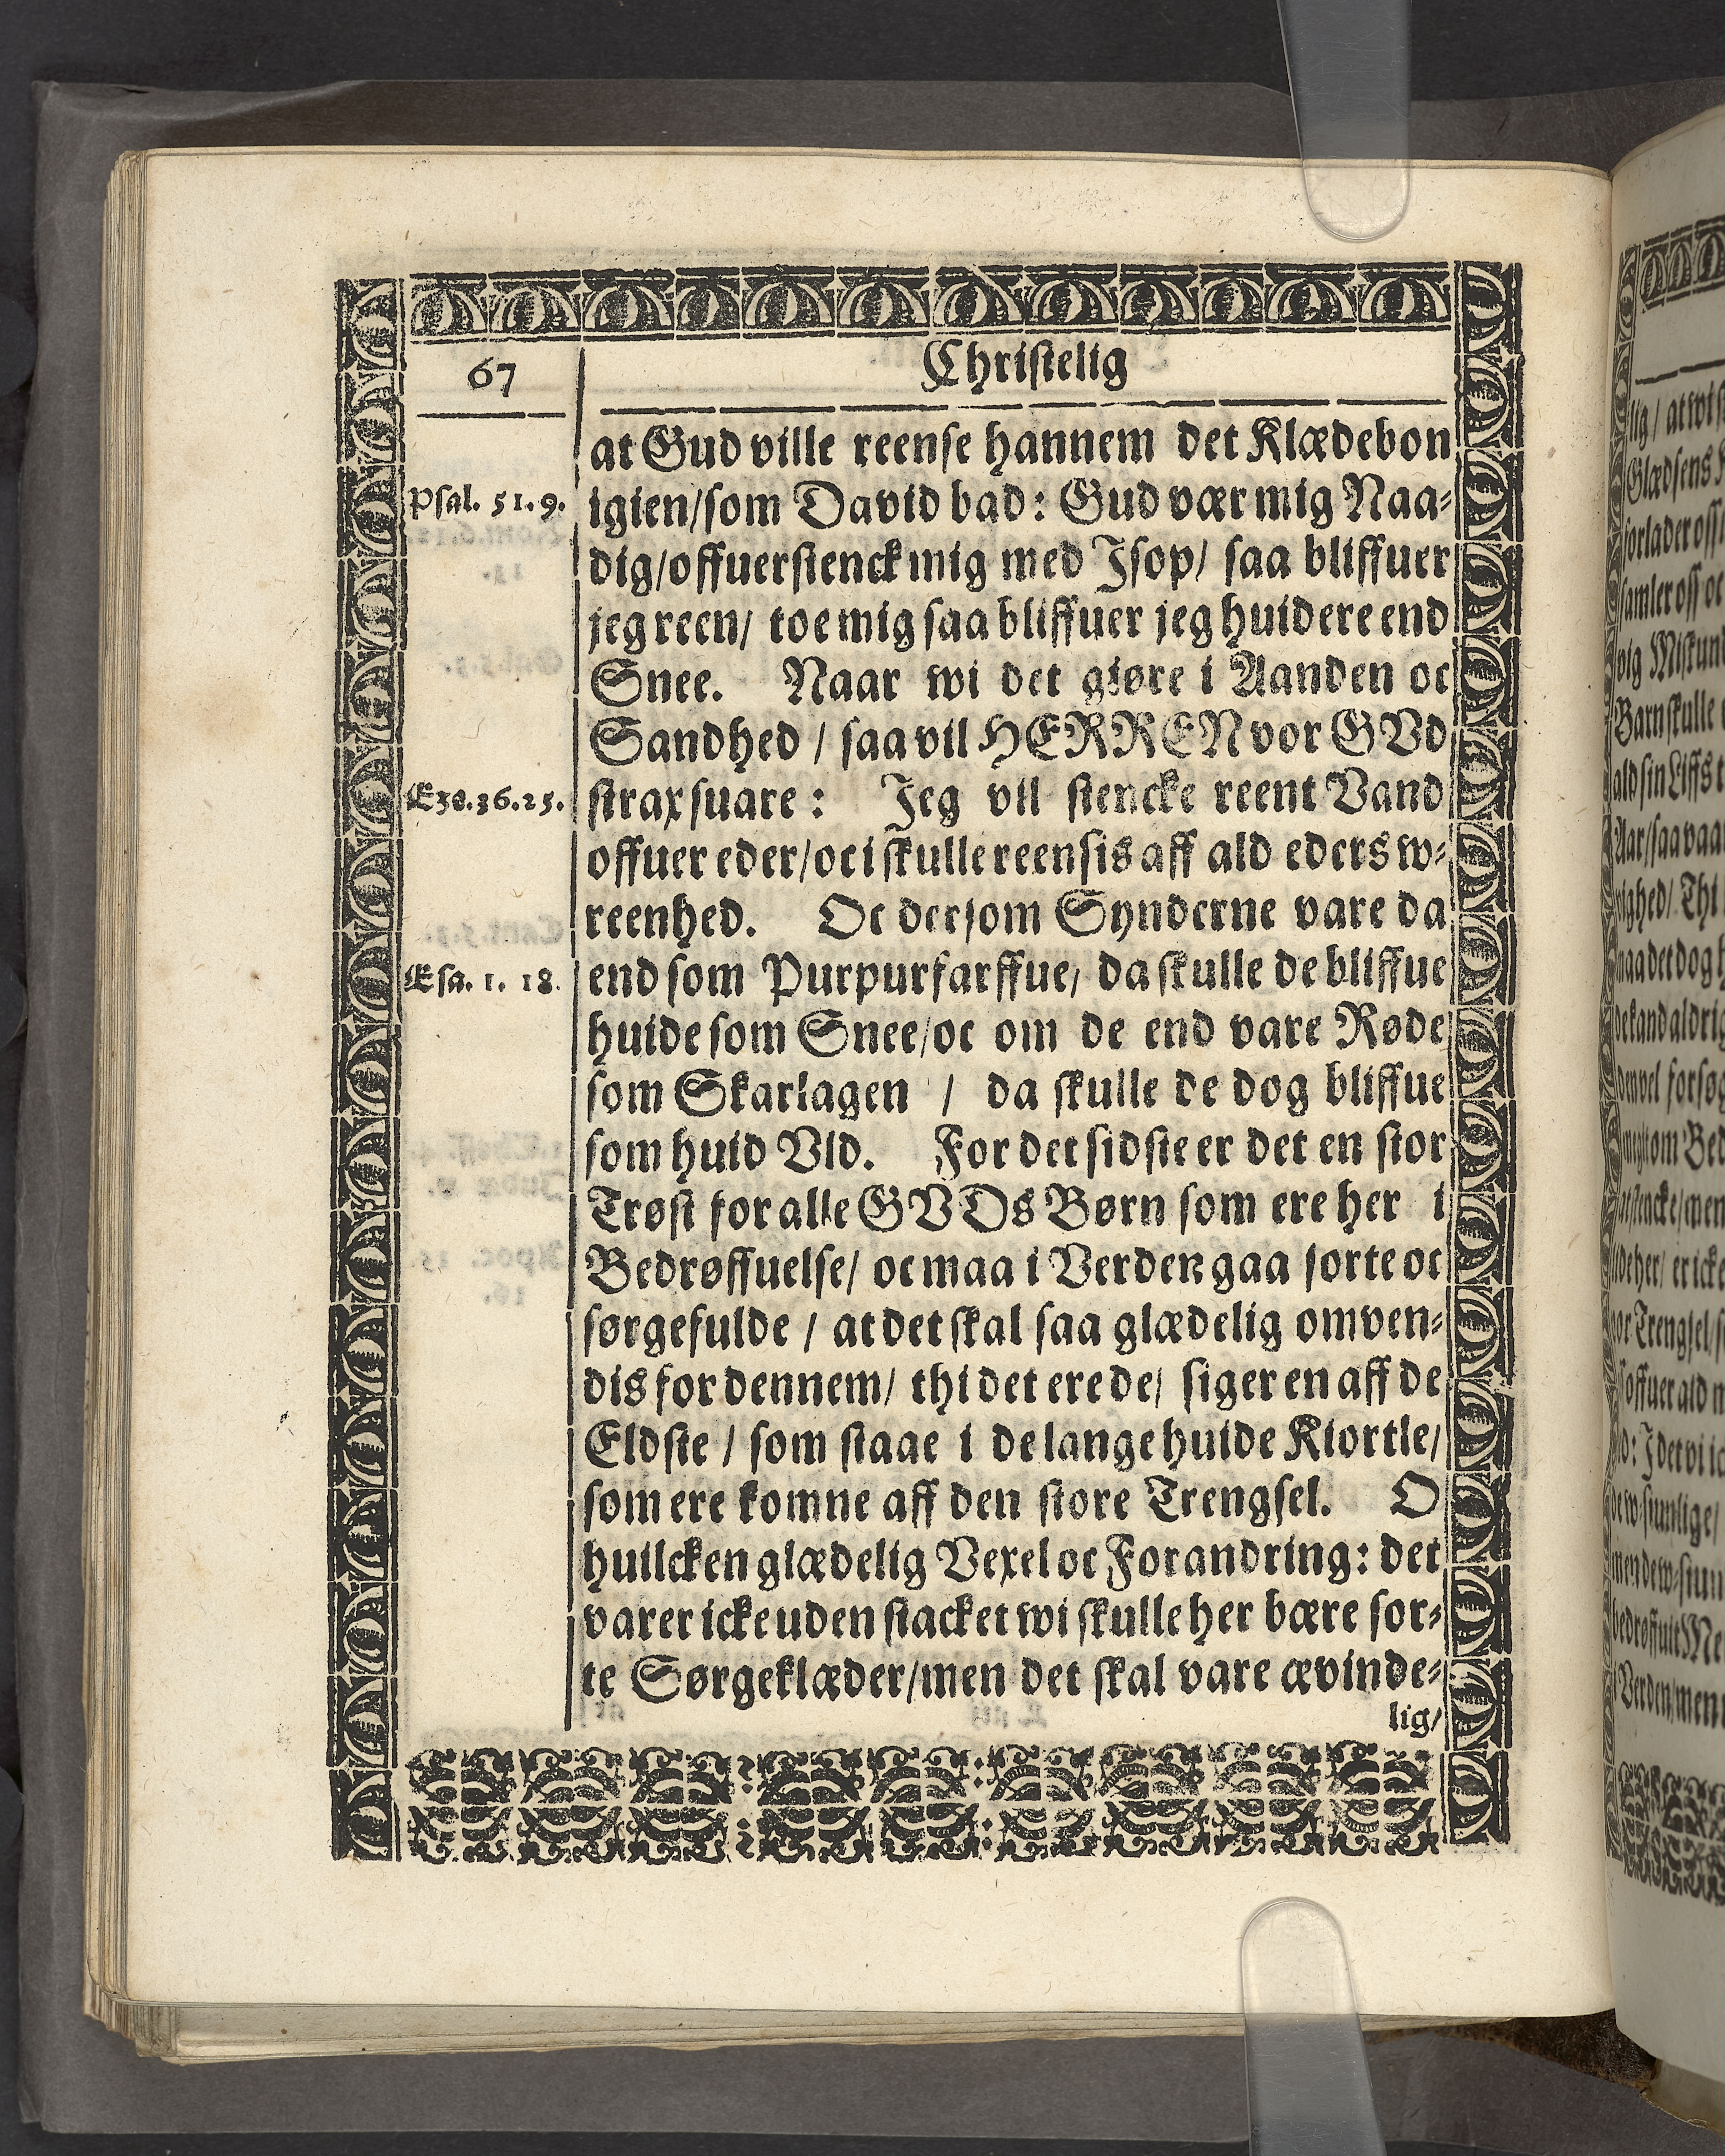 67
Christelig
at Gud ville reense hannem det Klædebon
Psal. 51. 9.
igien/som David bad: Gud vær mig Naa-
dig/offuerstenck mig med Isop/ saa bliffuer
jeg reen/ toe mig saa bliffuer jeg huidere end
Snee. Naar wi det giøre i Aanden oc
Sandhed / saa vil HERREN vor GVd
Eze. 36. 25.
strax suare: Jeg vil stencke reent Vand
offuer eder/oc i skulle reensis aff ald eders w-
reenhed. Oc dersom Synderne vare da
Esa. 1. 18.
end som Purpurfarffue/ da skulle de bliffue
huide som Snee/oc om de end vare Røde
som Skarlagen / da skulle de dog bliffue
som huid Vld. For det sidste er det en stor
Trøst for alle GVDs Børn som ere her i
Bedrøffuelse/ oc maa i Verden gaa sorte oc
sørgefulde / at det skal saa glædelig omven-
dis for dennem/ thi det ere de/ siger en aff de
Eldste / som staae i de lange huide Kiortle/
som ere komne aff den store Trengsel. O
huilcken glædelig Vexel oc Forandring: det
varer icke uden stacket wi skulle her bære sor-
te Sørgeklæder/men det skal vare ævinde-
lig/